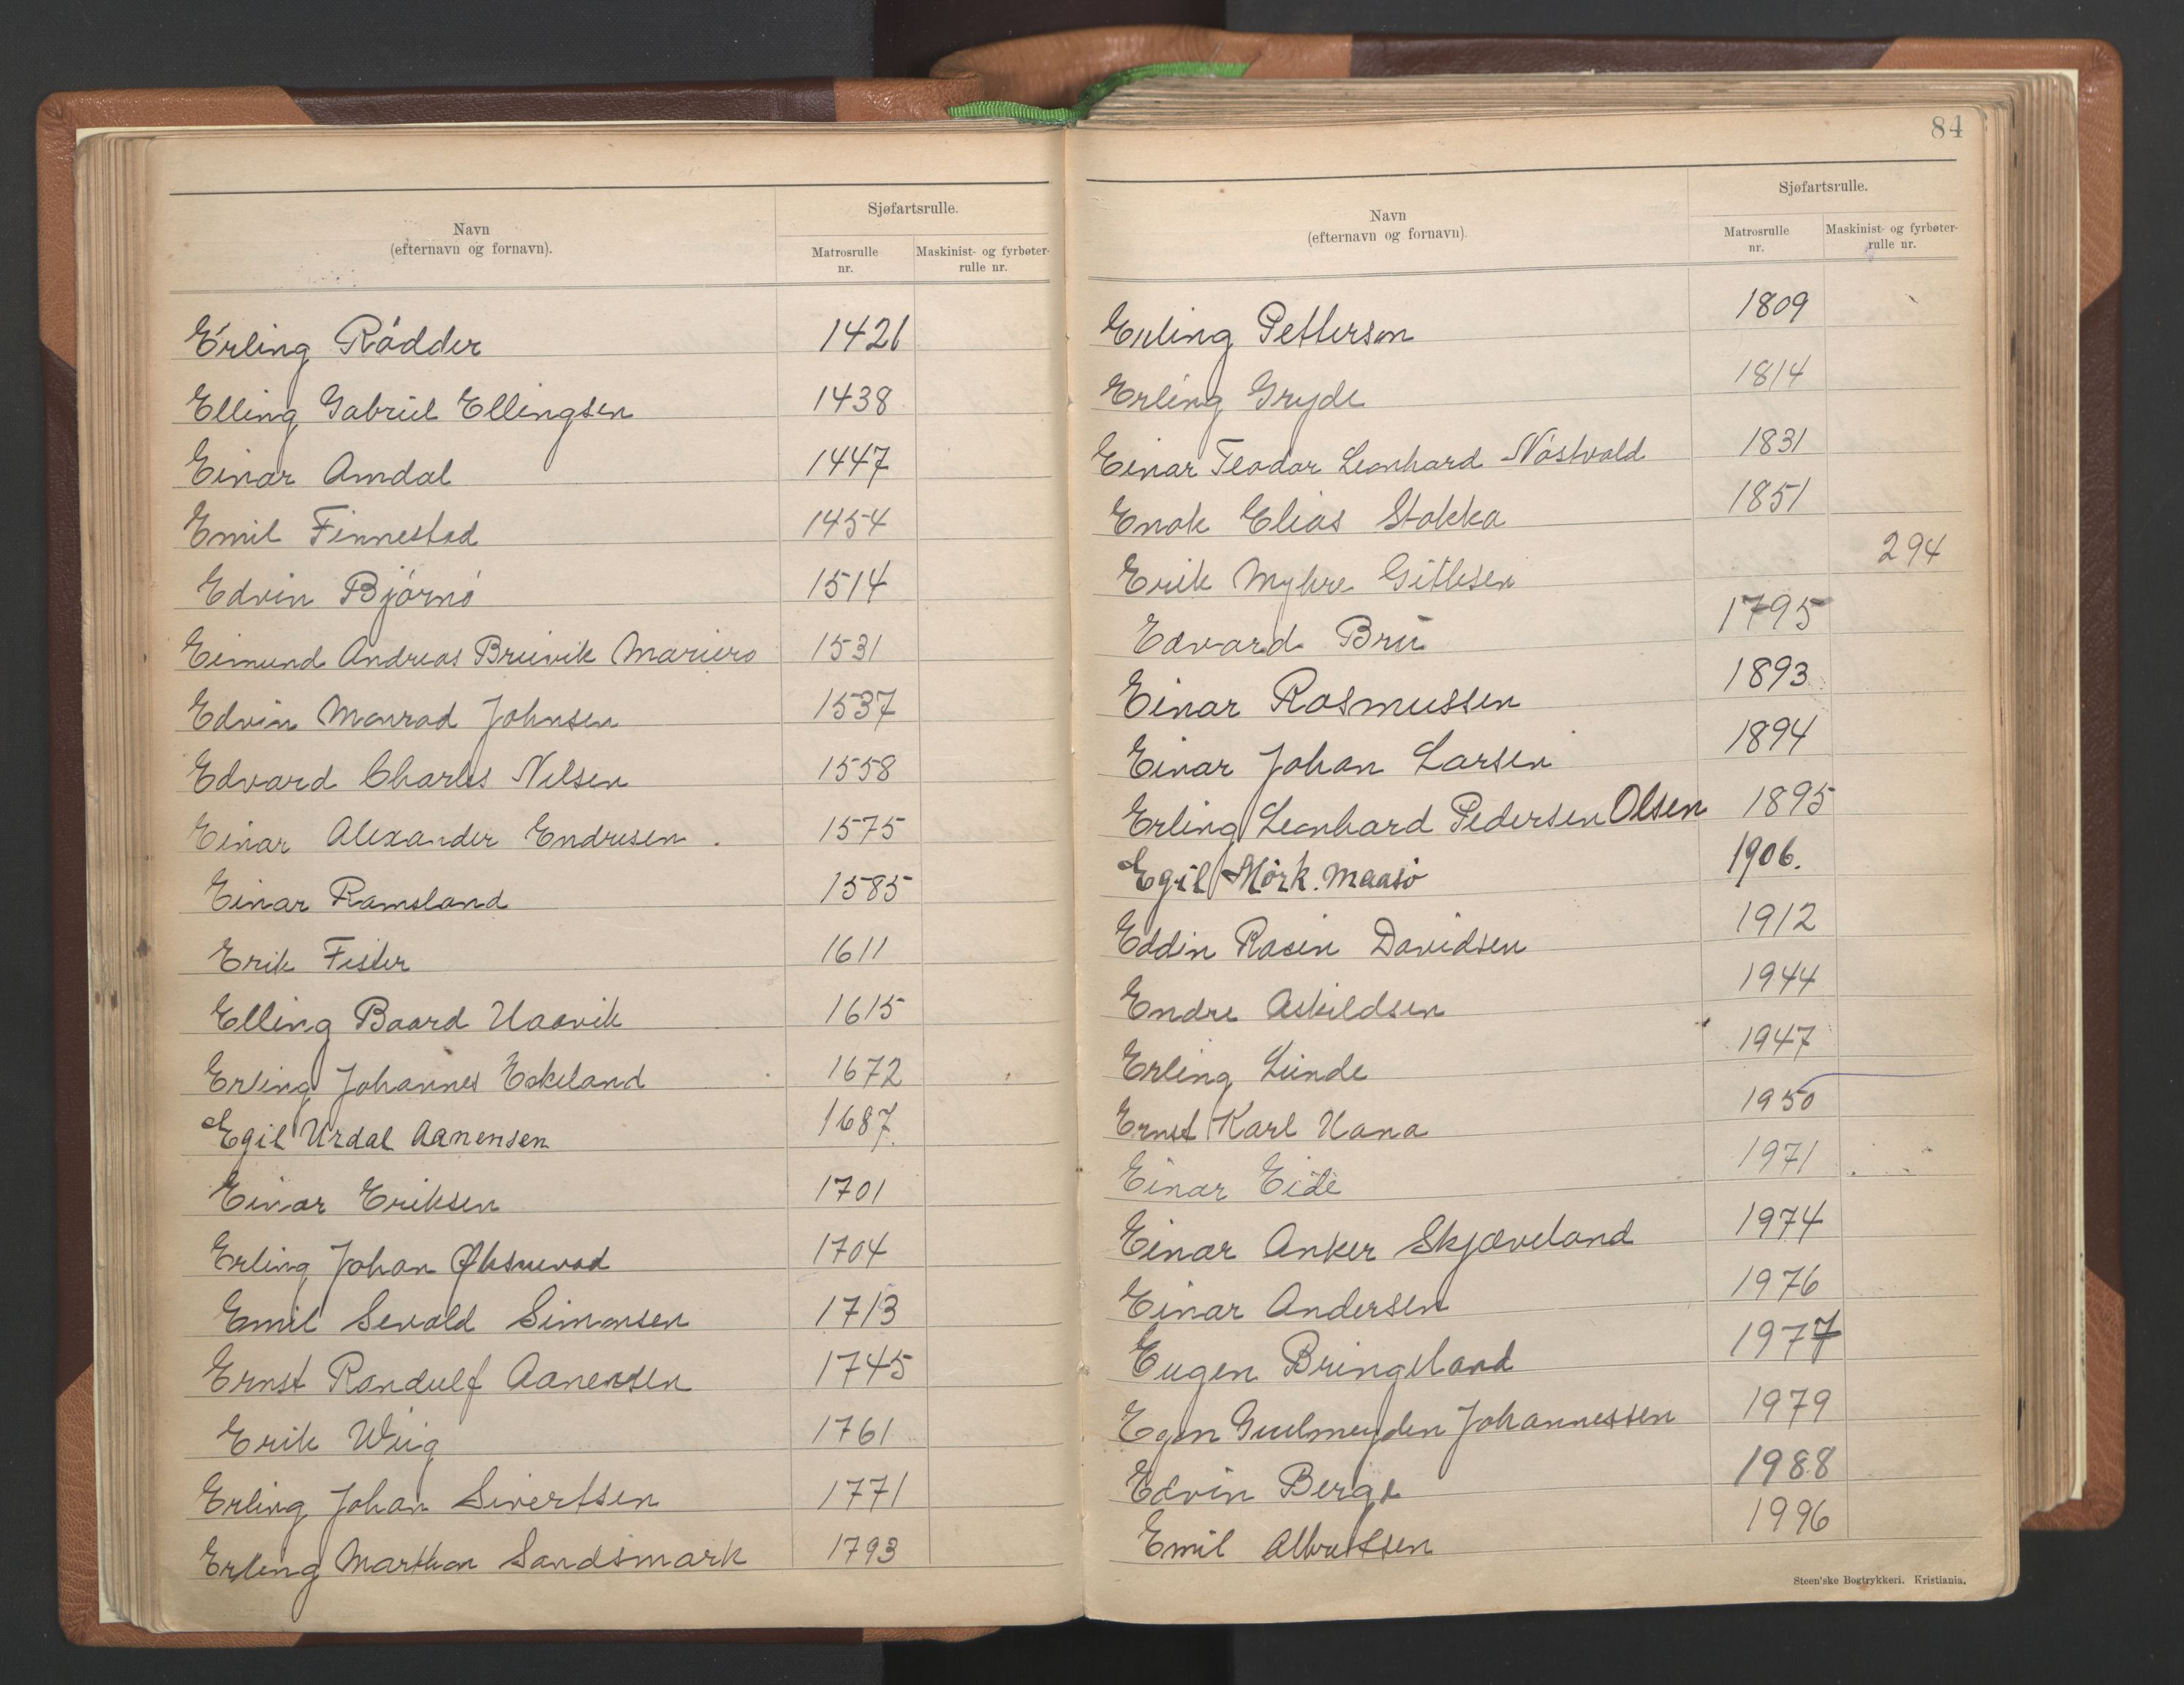 Navn
(efternavn og fornavn).
Sjøfartsrulle.
Matrosrulle nr.
Maskinist- og fyrbøter-rulle nr.
Erling Rödder 1421
Elling Gabriel Ellingsen 1438
Einar Amdal 1447
Emil Finnestad 1454
Edvin Björnö 1514
Eimund Andreas Bruvik Mariero 1531
Edvin Monrad Johnsen 1537
Edvard Charles Nilsen 1558
Einar Alexander Endresen. 1575
Einar Ramsland 1585
Erik Fister 1611
Elling Baard Haavik 1615
Erling Johannes Eskeland 1672
Egil Urdal Aanensen 1687
Einar Eriksen 1701
Erling Johan Øksnevad 1704
Emil Sevald Simonsen 1713
Ernst Randulf Aanensen 1745
Erik Wiig 1761
Erling Johan Sivertsen 1771
Erling Marthon Sandsmark 1793
84
Navn
(efternavn og fornavn).
Sjøfartsrulle.
Matrosrulle nr.
Maskinist- og fyrbøter-rulle nr.
Erling Petterson 1809
Erling Gryde 1814
Einar Teodor Leonhard Nöstvold 1831
Enok Elias Stokka 1851
Erik Myhre Gitlesen 294
Edvard Bru 1795
Einar Rasmussen 1893
Einar Johan Larsen 1894
Erling Leonhard Pedersen Olsen 1895
Egil Mörk. Maasö 1906.
Eddin Racin Davidsen 1912
Endre Askildsen 1944
Erling Lunde 1947
Ernst Karl Hana 1950
Einar Eide 1971
Einar Anker Skjæveland 1974
Einar Andersen 1976
Eugen Bringeland 1977
Egon Gulmeyden Johannessen 1979
Edvin Berge 1988
Emil Albretsen 1996
Steen'ske Bogtrykkeri. Kristiania.